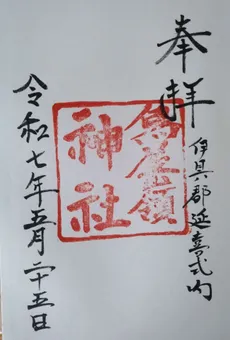 奉拝
伊具郡延喜式内
鳥屋嶺
神社
令和七年五月二十五日